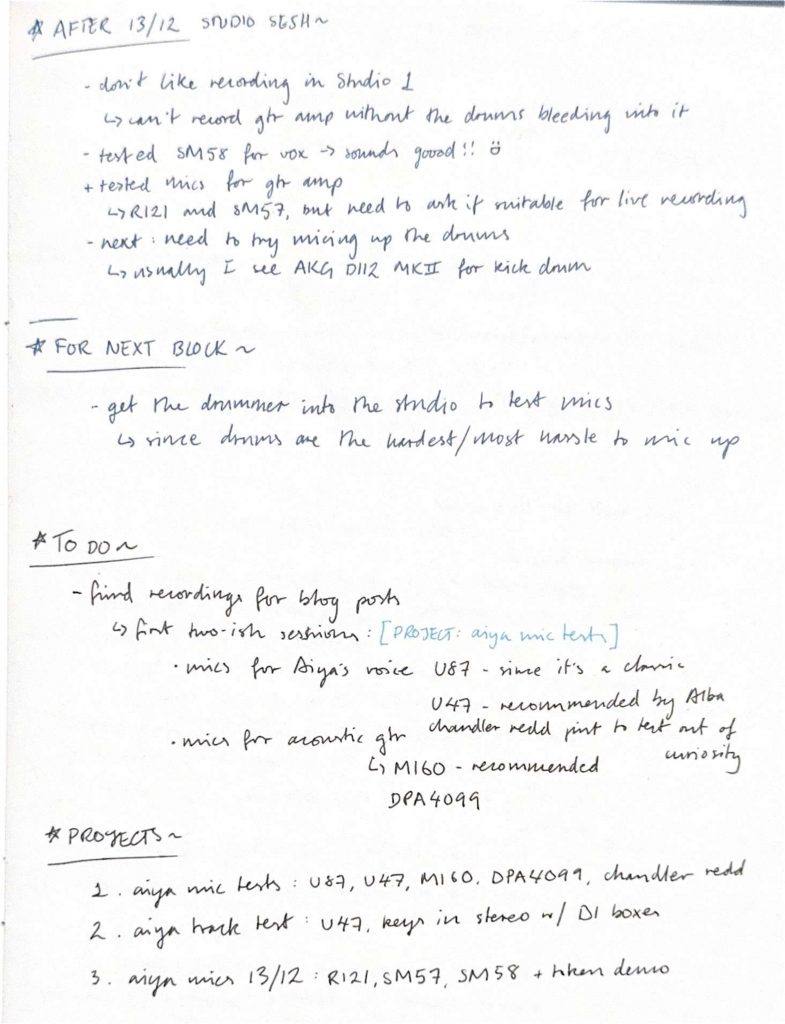 ☆ AFTER 13/12 STUDIO SESH~
- don't like recording in Studio 1
↳ can't record gtr amp without the drums bleeding into it
- tested SM58 for vox → sounds goood!! ☺
+ tested mics for gtr amp
↳ R121 and SM57, but need to ask if suitable for live recording
- next: need to try micing up the drums
↳ usually I see AKG D112 MKII for kick drum
☆ FOR NEXT BLOCK ~
- get the drummer into the studio to test mics
↳ since drums are the hardest/most hassle to mic up
☆ TO DO ~
- find recordings for blog posts
↳ first two-ish sessions: [PROJECT: aiya mic tests]
• mics for Aiya's voice U87 - since it's a classic
U47 - recommended by Alba
chandler redd just to test out of curiosity
• mics for acoustic gtr
↳ M160 - recommended
DPA4099
☆ PROJECTS ~
1. aiya mic tests: U87, U47, M160, DPA4099, chandler redd
2. aiya track test: U47, keys in stereo w/ DI boxes
3. aiya mics 13/12: R121, SM57, SM58 + demo